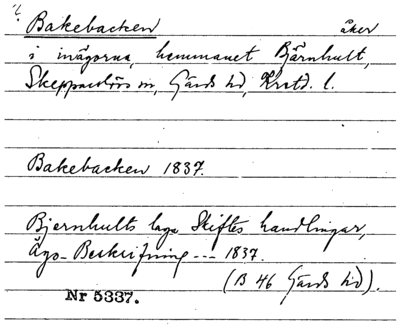 Bakebacken åker
i inägorna, hemmanet Bjärnhult,
Skepparslövs sn, Gärds hd, Krstd. l.
Bakebacken 1837.
Bjernhults laga Skiftes handlingar,
Ägo-Beskrifning --- 1837.
(B 46 Gärds hd).
Nr 5337.